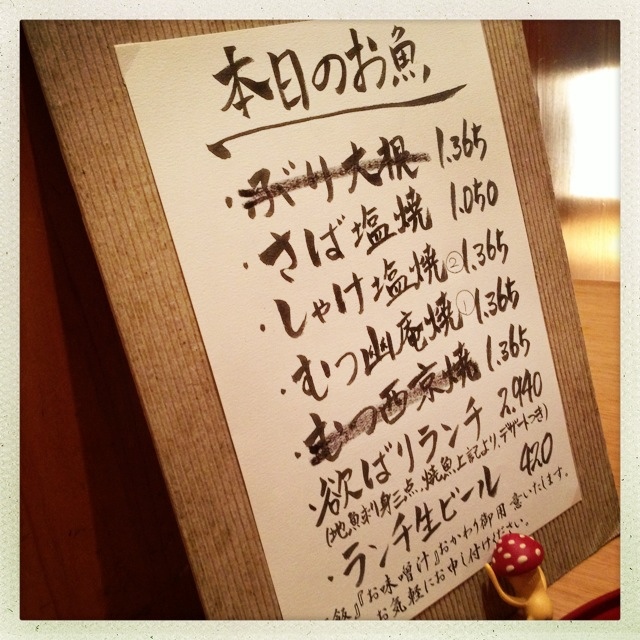 本日のお魚
・ぶり大根 1.365
・さば塩焼 1.050
・しゃけ塩焼 ② 1.365
・むつ幽庵焼 ① 1.365
・むつ西京焼 1.365
・欲ばりランチ 2.940
(地魚刺身三点、焼魚上記より、デザートつき)
・ランチ生ビール 420
飯』『お味噌汁』おかわり御用意いたします。
お気軽にお申し付けください。